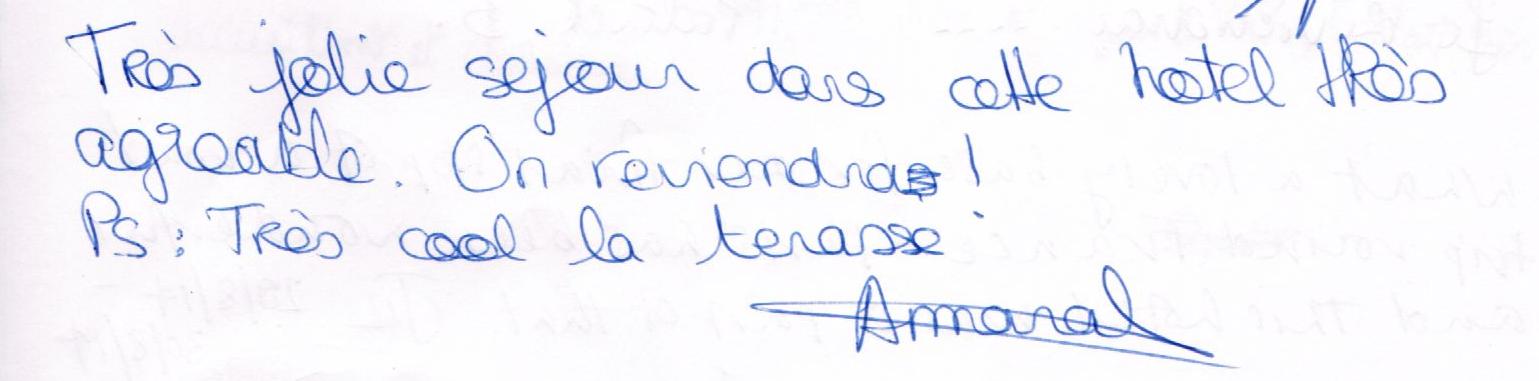 Très jolie sejour dans cette hotel très
agreable. On reviendra !
Ps : Très cool la terasse
Amaral